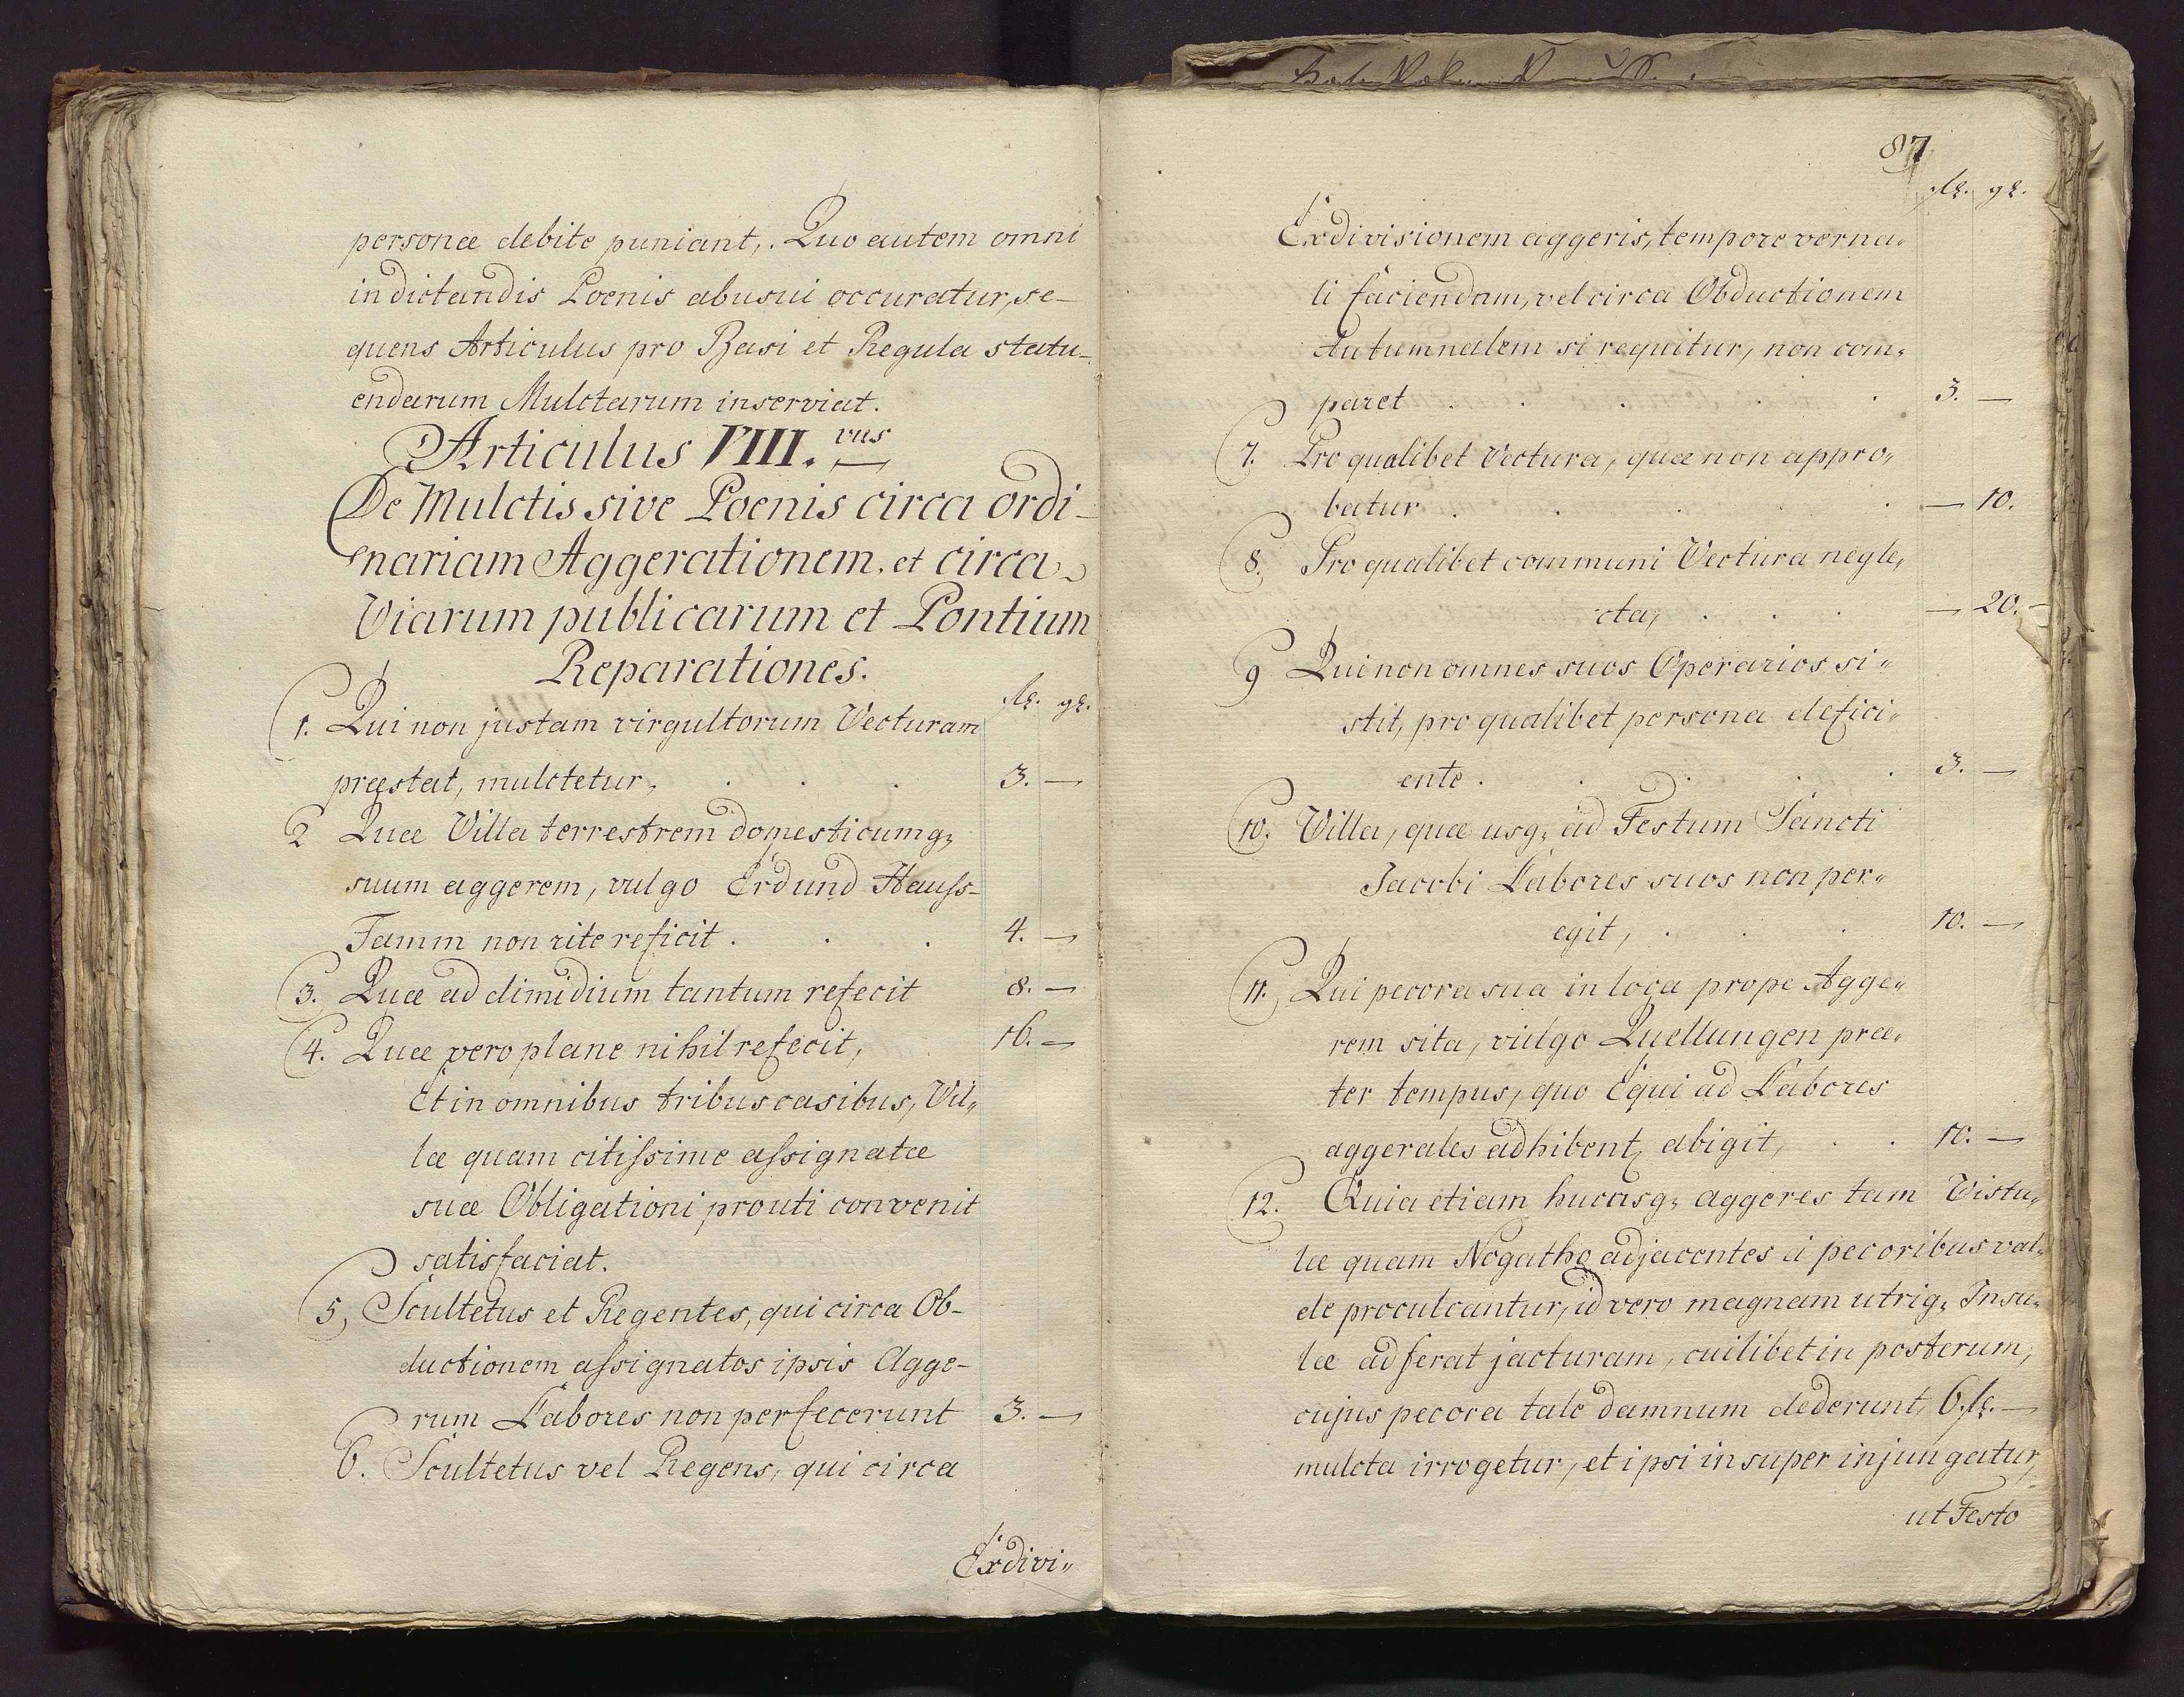 personæ debite puniant,. Quo autem omni
indictandis Poenis abusui occuratur, se-
quens Articulus pro Basi et Regula statu-
endarum Mulctarum inserviat.
Articulus VIII.vus
De Mulctis sive Poenis circa ordi-
nariam Aggerationem. et circa
Viarum publicarum et Pontium
Reparationes.
fl. gl.
1. Qui non justam virgultorum Vecturam
præstat, mulctetur, . . . 3. —
2 Quæ Villa terrestrem domesticumq;
suum aggerem, vulgo Erd und Hauss-
Tamm non rite reficit . . . 4. —
3. Quæ ad dimidium tantum refecit 8. —
4. Quæ vero plane nihil refecit, 16. —
Et in omnibus tribus casibus, Vil-
læ quam citissime assignatæ
suæ Obligationi prouti convenit
satisfaciat.
5, Scultetus et Regentes, qui circa Ob-
ductionem assignatos ipsis Agge-
rum Labores non perfecerunt 3. —
6. Scultetus vel Regens, qui circa
Exdivi-
87
fl. gl.
Exdivisionem aggeris, tempore verna-
li faciendam, vel circa Obductionem
Autumnalem si requitur, non com-
paret . . . . . 3. —
7. Pro qualibet Vectura, quæ non appro-
batur . . . . — 10.
8. Pro qualibet communi Vectura negle-
cta, . . . — 20. —
9 Qui non omnes suos Operarios si-
stit, pro qualibet persona defici-
ente . . . . . 3. —
10. Villa, quæ usq; ad Festum Sancti
Jacobi Labores suos non per-
egit, . . . 10. —
11. Qui pecora sua in loca prope Agge-
rem sita, vulgo Quellungen præ-
ter tempus, quo Equi ad Labores
aggerales adhibent, abigit, . . 10. —
12. Quia etiam hucusq; aggeres tam Vistu-
læ quam Nogathæ adjacentes à pecoribus val-
de proculcantur, id vero magnam utriq; Insu-
læ adferat jacturam, cuilibet in posterum,
cujus pecora tale damnum dederunt, 6. fl. —
mulcta irrogetur, et ipsi insuper injungatur,
ut Festo